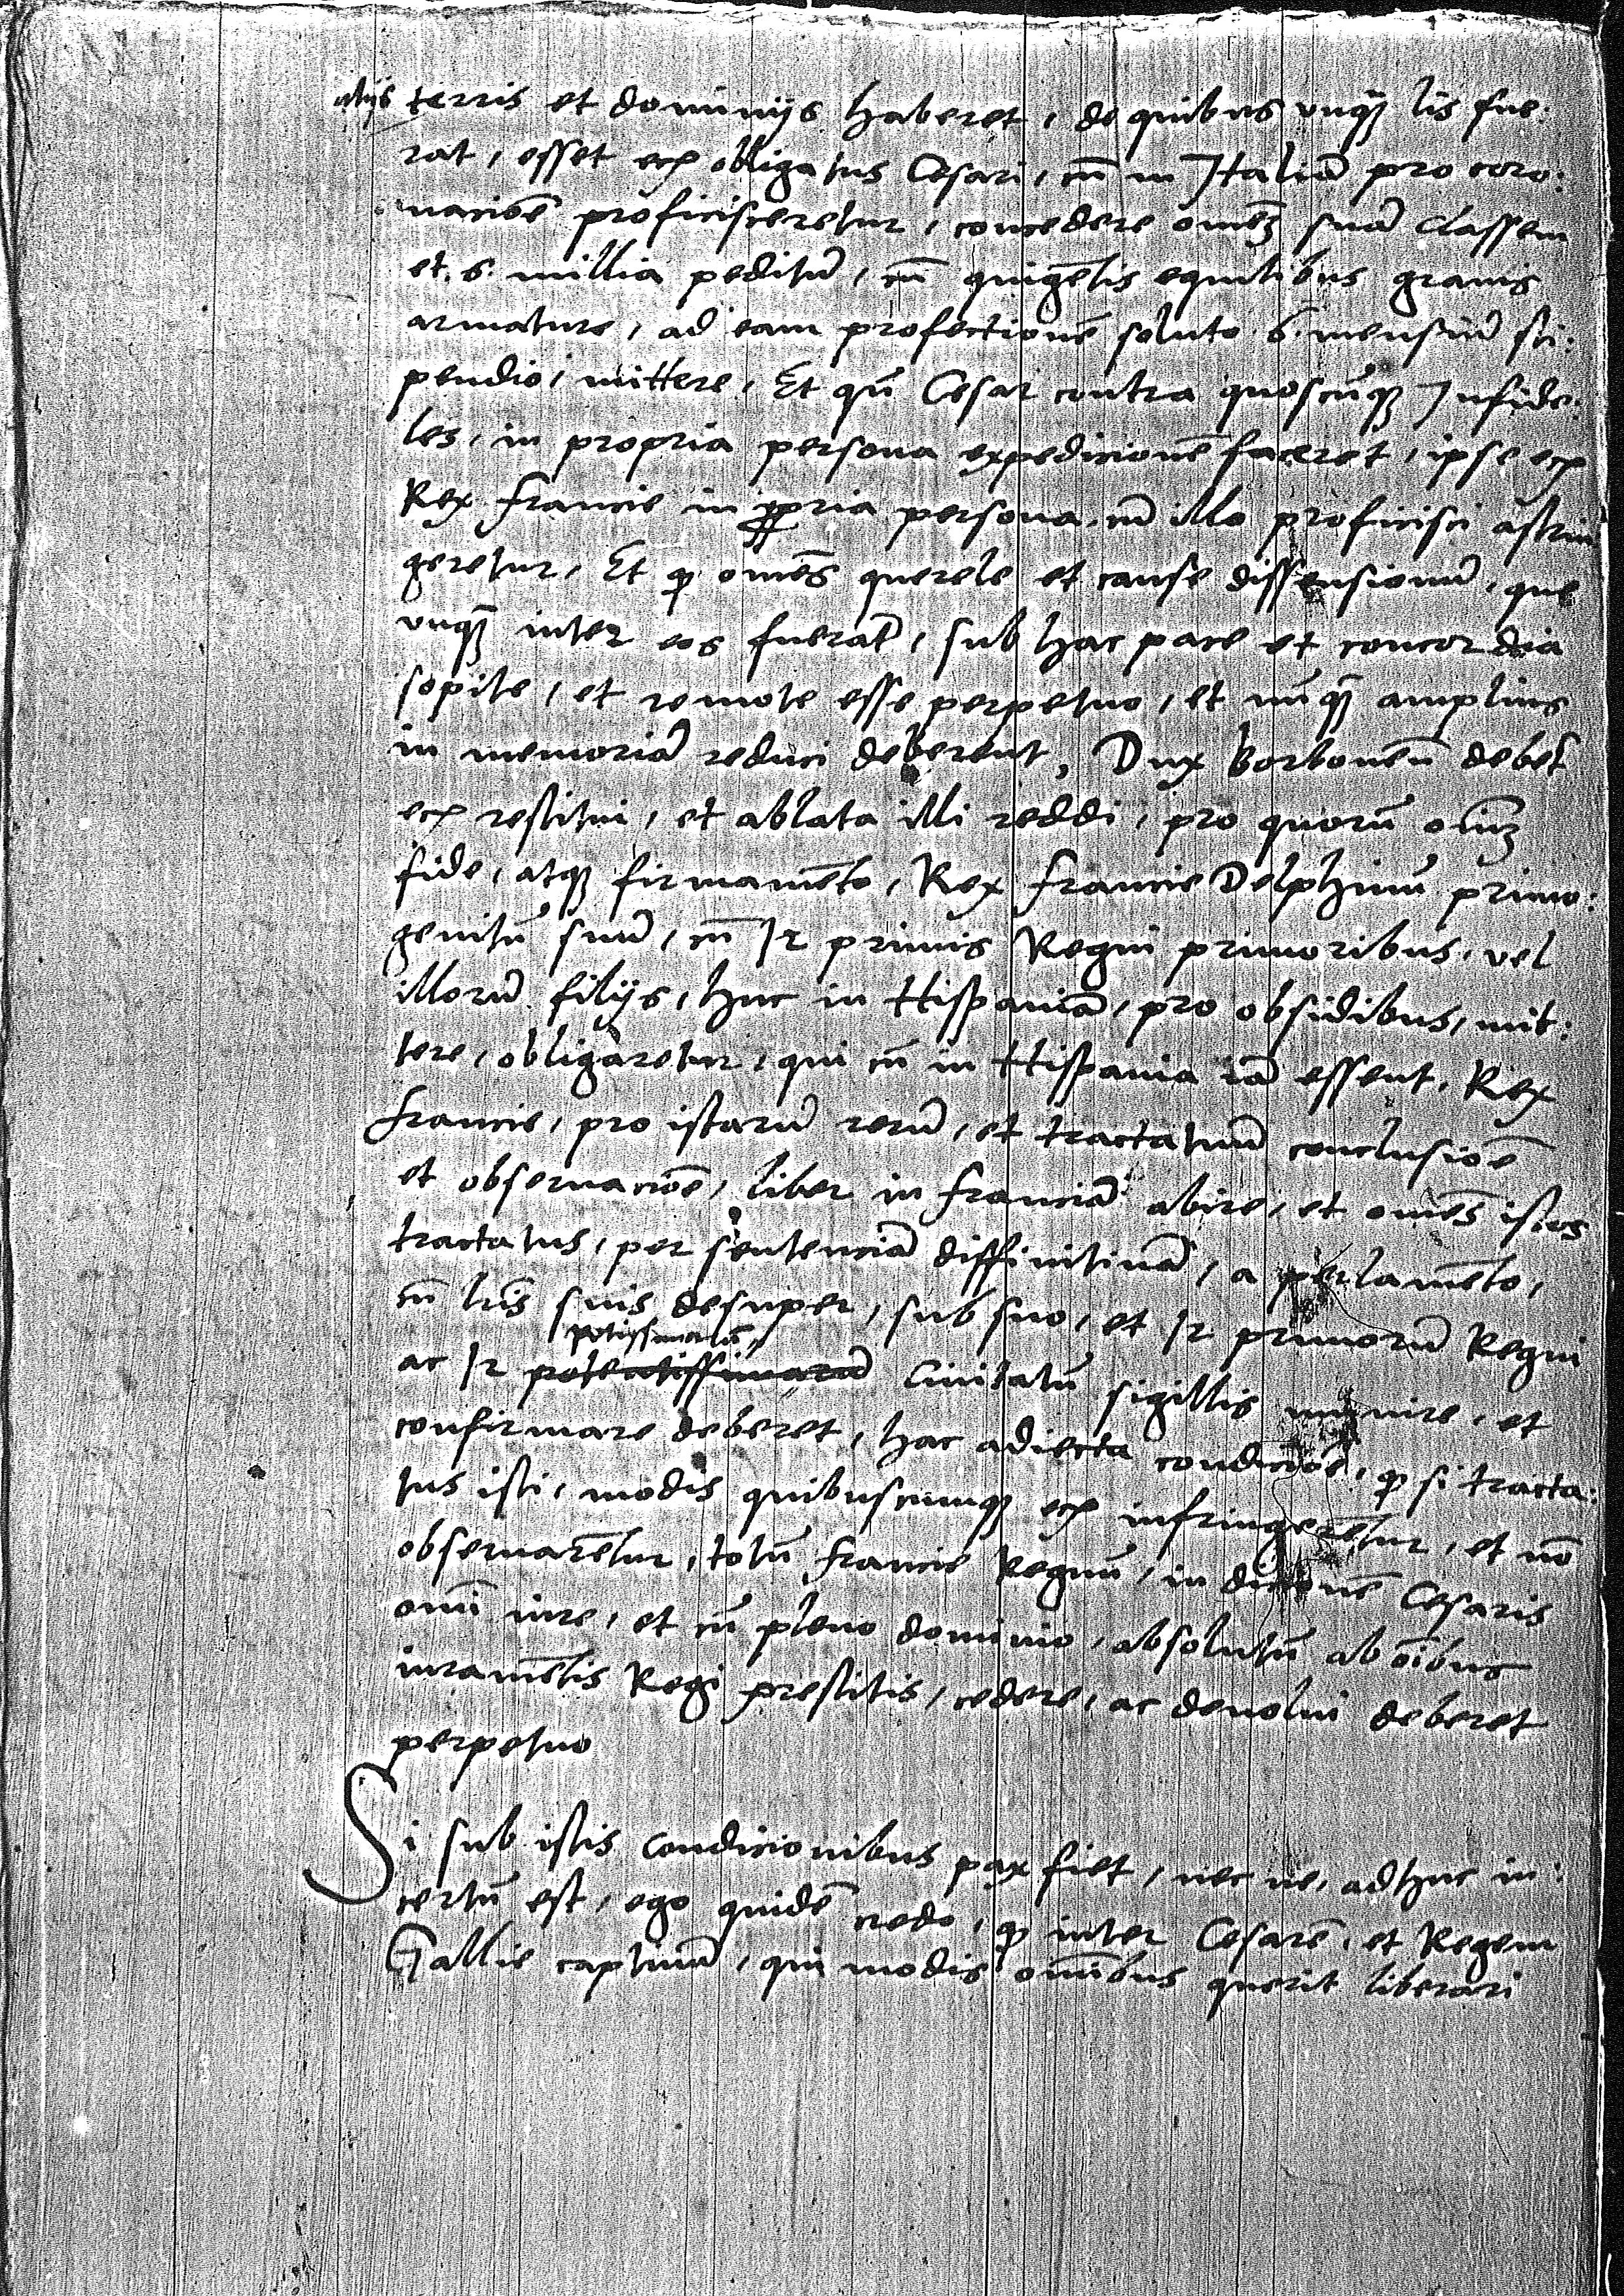 alijs terris et dominijs haberet, de quibus vnqȝ lis fue:
rat, esset ecꝫ obligatus Cesari, cū in Italiā pro coro:
nacioē proficisceretur, concedere omēȝ suā classem
et .6. millia peditū, cū quigētis equitibus grauis
armature, ad eam profectionē soluto 6. mensiū sti:
pendio, mittere, Et qñ Cesar contra quoscūqȝ Infide:
les, in propria persona expedicionē faceret, ipse ecꝫ
Rex francie in ꝓpria persona cū illo proficisci astrin
geretur, Et ꝙ omēs querele et cause dissensionū, que
vnqȝ inter eos fuerāt, sub hac pace et concordia
sopite, et remote esse perpetuo, et nūqȝ amplius
in memoriā reduci deberent, Dux borboneñ debet
ecꝫ restitui, et ablata illi reddi, pro quorū oīm
fide, atqȝ firmamēto, Rex francie Delphinū primo:
genitū suū, cū 12 primis Regni primoribus, vel
illorū filijs, huc in Hispaniā, pro obsidibus, mit:
tere, obligaretur, qui cū in Hispania iā essent, Rex
francie, pro istarū rerū, et tractatuū conclusioē
et obseruacioē, liber in franciā abire, et omēs istos
tractatus, per sentenciā diffinitiuā, a perlamēto,
cū lrīs suis desuper, sub suo, et 12 primorū Regni
potissimarū
ac 12 potentissimarū Ciuitatū sigillis munire, et
confirmare deberet, hac adiecta condicioē, ꝙ si tracta:
tus isti, modis quibuscumqȝ ecꝫ infringerētur, et nō
obseruarētur, totū francie Regnū, in dicionē Cesaris
omī iure, et cū pleno dominio, absolutū ab oībus
iuramētis Regi prestitis, cedere, ac deuolui deberet
perpetuo
Si sub istis condicionibus pax fiet, nec ne, adhuc in:
certū est, ego quidē credo, ꝙ inter Cesarē, et Regem
Gallie captiuū, qui modis omībus querit liberari